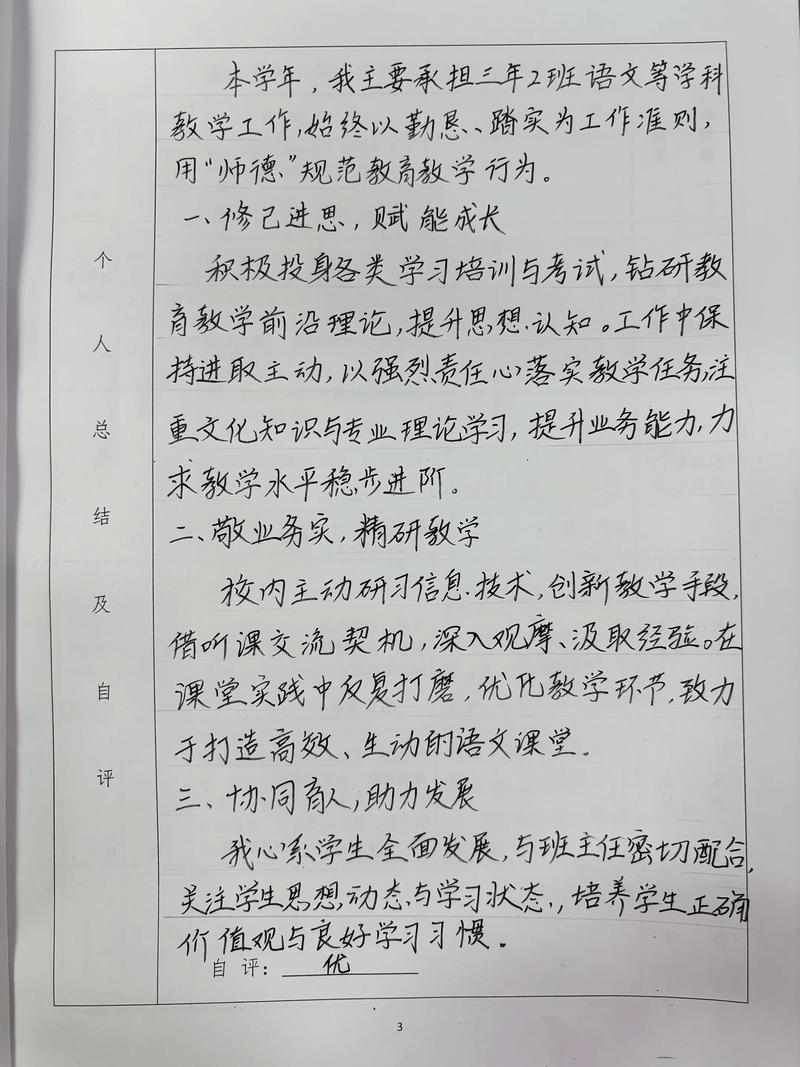 本学年，我主要承担三年2班语文等学科
教学工作，始终以勤恳、踏实为工作准则，
用“师德”规范教育教学行为。
一、修己进思，赋能成长
积极投身各类学习培训与考试，钻研教
育教学前沿理论，提升思想认知。工作中保
持进取主动，以强烈责任心落实教学任务，注
重文化知识与专业理论学习，提升业务能力，力
求教学水平稳步进阶。
二、敬业务实，精研教学
校内主动研习信息技术，创新教学手段，
借听课交流契机，深入观摩、汲取经验。在
课堂实践中反复打磨，优化教学环节，致力
于打造高效、生动的语文课堂。
三、协同育人，助力发展
我心系学生全面发展，与班主任密切配合，
关注学生思想动态与学习状态，培养学生正确
价值观与良好学习习惯。
自评：优
个
人
总
结
及
自
评
3